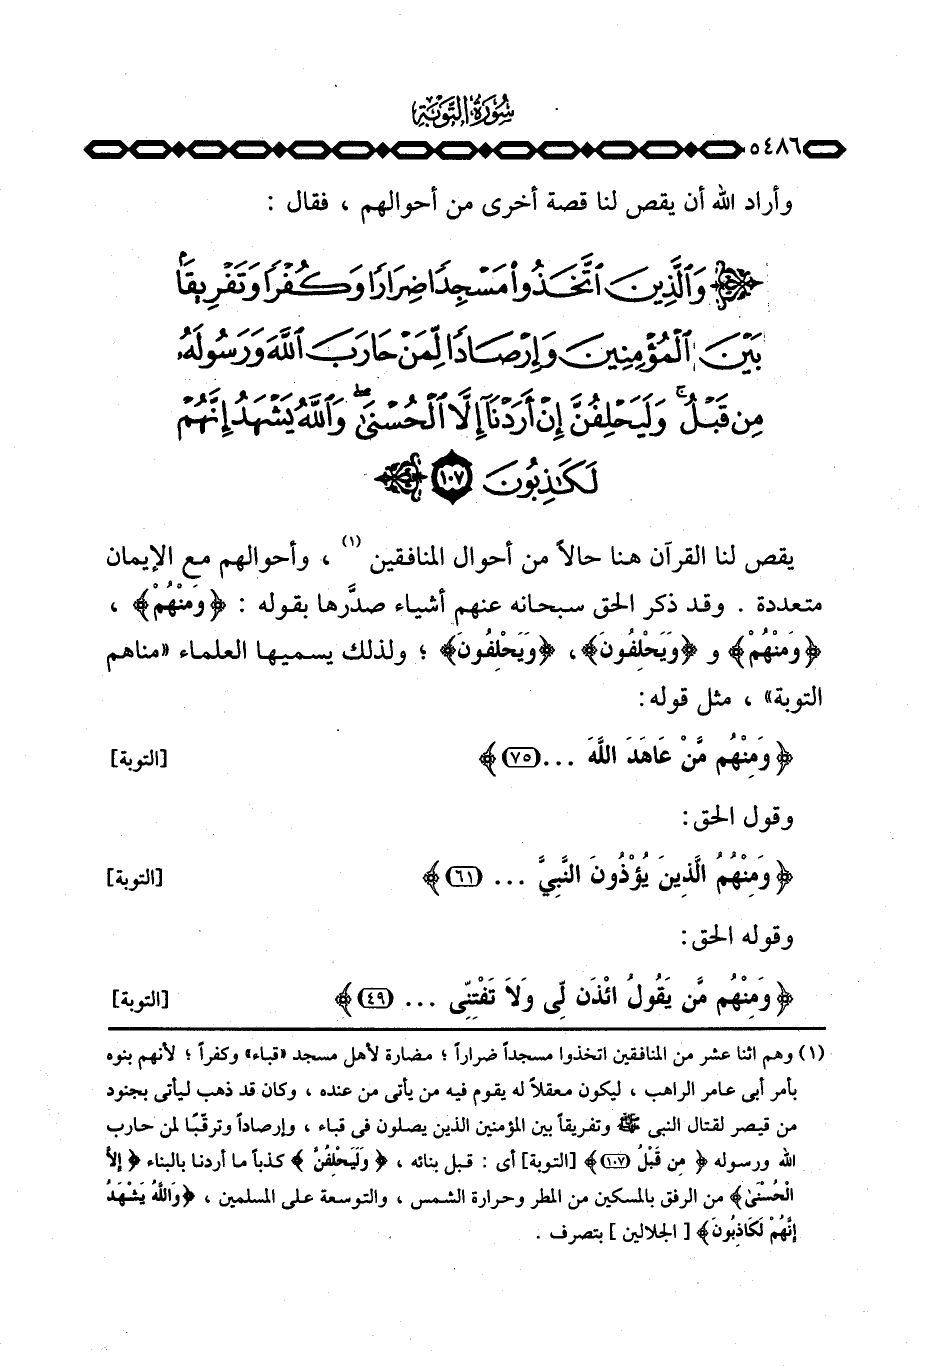 سُورَةُ التَّوْبَةِ
٥٤٨٦
وأراد الله أن يقص لنا قصة أخرى من أحوالهم ، فقال :
وَٱلَّذِينَ ٱتَّخَذُوا۟ مَسْجِدًا ضِرَارًا وَكُفْرًا وَتَفْرِيقًۢا
بَيْنَ ٱلْمُؤْمِنِينَ وَإِرْصَادًا لِّمَنْ حَارَبَ ٱللَّهَ وَرَسُولَهُۥ
مِن قَبْلُ ۚ وَلَيَحْلِفُنَّ إِنْ أَرَدْنَآ إِلَّا ٱلْحُسْنَىٰ ۖ وَٱللَّهُ يَشْهَدُ إِنَّهُمْ
لَكَـٰذِبُونَ ١٠٧
يقص لنا القرآن هنا حالاً من أحوال المنافقين (١) ، وأحوالهم مع الإيمان
متعددة . وقد ذكر الحق سبحانه عنهم أشياء صدَّرها بقوله : ﴿ وَمِنْهُمْ ﴾ ،
﴿ وَمِنْهُمْ ﴾ و ﴿ وَيَحْلِفُونَ ﴾ ، ﴿ وَيَحْلِفُونَ ﴾ ؛ ولذلك يسميها العلماء «مناهم
التوبة» ، مثل قوله:
﴿ وَمِنْهُم مَّنْ عَاهَدَ اللَّهَ ... (٧٥) ﴾ [التوبة]
وقول الحق:
﴿ وَمِنْهُمُ الَّذِينَ يُؤْذُونَ النَّبِيَّ ... (٦١) ﴾ [التوبة]
وقوله الحق:
﴿ وَمِنْهُم مَّن يَقُولُ ائْذَن لِّي وَلاَ تَفْتِنِّي ... (٤٩) ﴾ [التوبة]
(١) وهم اثنا عشر من المنافقين اتخذوا مسجداً ضراراً ؛ مضارة لأهل مسجد «قباء» وكفراً ؛ لأنهم بنوه
بأمر أبى عامر الراهب ، ليكون معقلاً له يقوم فيه من يأتى من عنده ، وكان قد ذهب ليأتى بجنود
من قيصر لقتال النبى ﷺ وتفريقاً بين المؤمنين الذين يصلون فى قباء ، وإرصاداً وترقّبًا لمن حارب
الله ورسوله ﴿ مِن قَبْلُ (١٠٧) ﴾ [التوبة] أى : قبل بنائه ، ﴿ وَلَيَحْلِفُنَّ ﴾ كذباً ما أردنا بالبناء ﴿ إِلاَّ
الْحُسْنَىٰ ﴾ من الرفق بالمسكين من المطر وحرارة الشمس ، والتوسعة على المسلمين ، ﴿ وَاللَّهُ يَشْهَدُ
إِنَّهُمْ لَكَاذِبُونَ ﴾ [ الجلالين ] بتصرف .